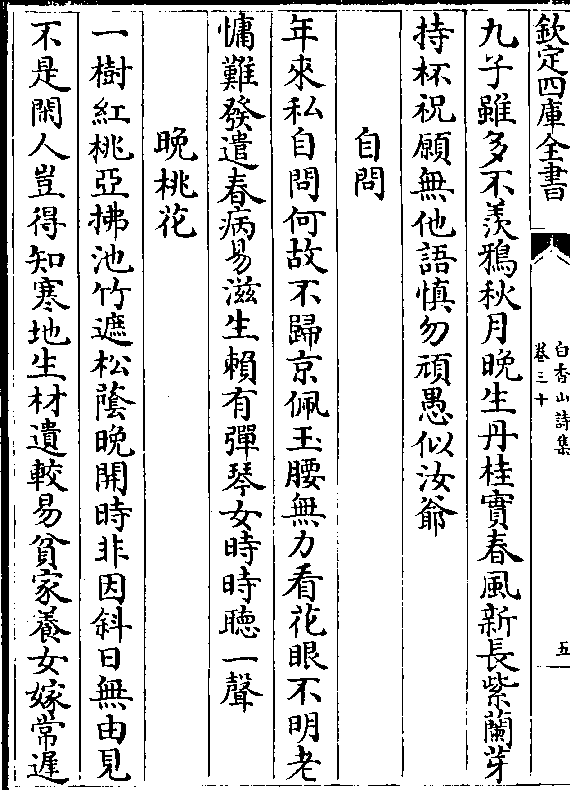 欽定四庫全書
白香山詩集
卷三十
五
九子雖多不羨鴉秋月晩生丹桂實春風新長紫蘭芽
持杯祝願無他語慎勿頑愚似汝爺
自問
年來私自問何故不歸京佩玉腰無力看花眼不明老
慵難發遣春病易滋生賴有彈琴女時時聴一聲
晩桃花
一樹紅桃亞拂池竹遮松蔭晩開時非因斜日無由見
不是閑人豈得知寒地生材遺較易貧家養女嫁常遲